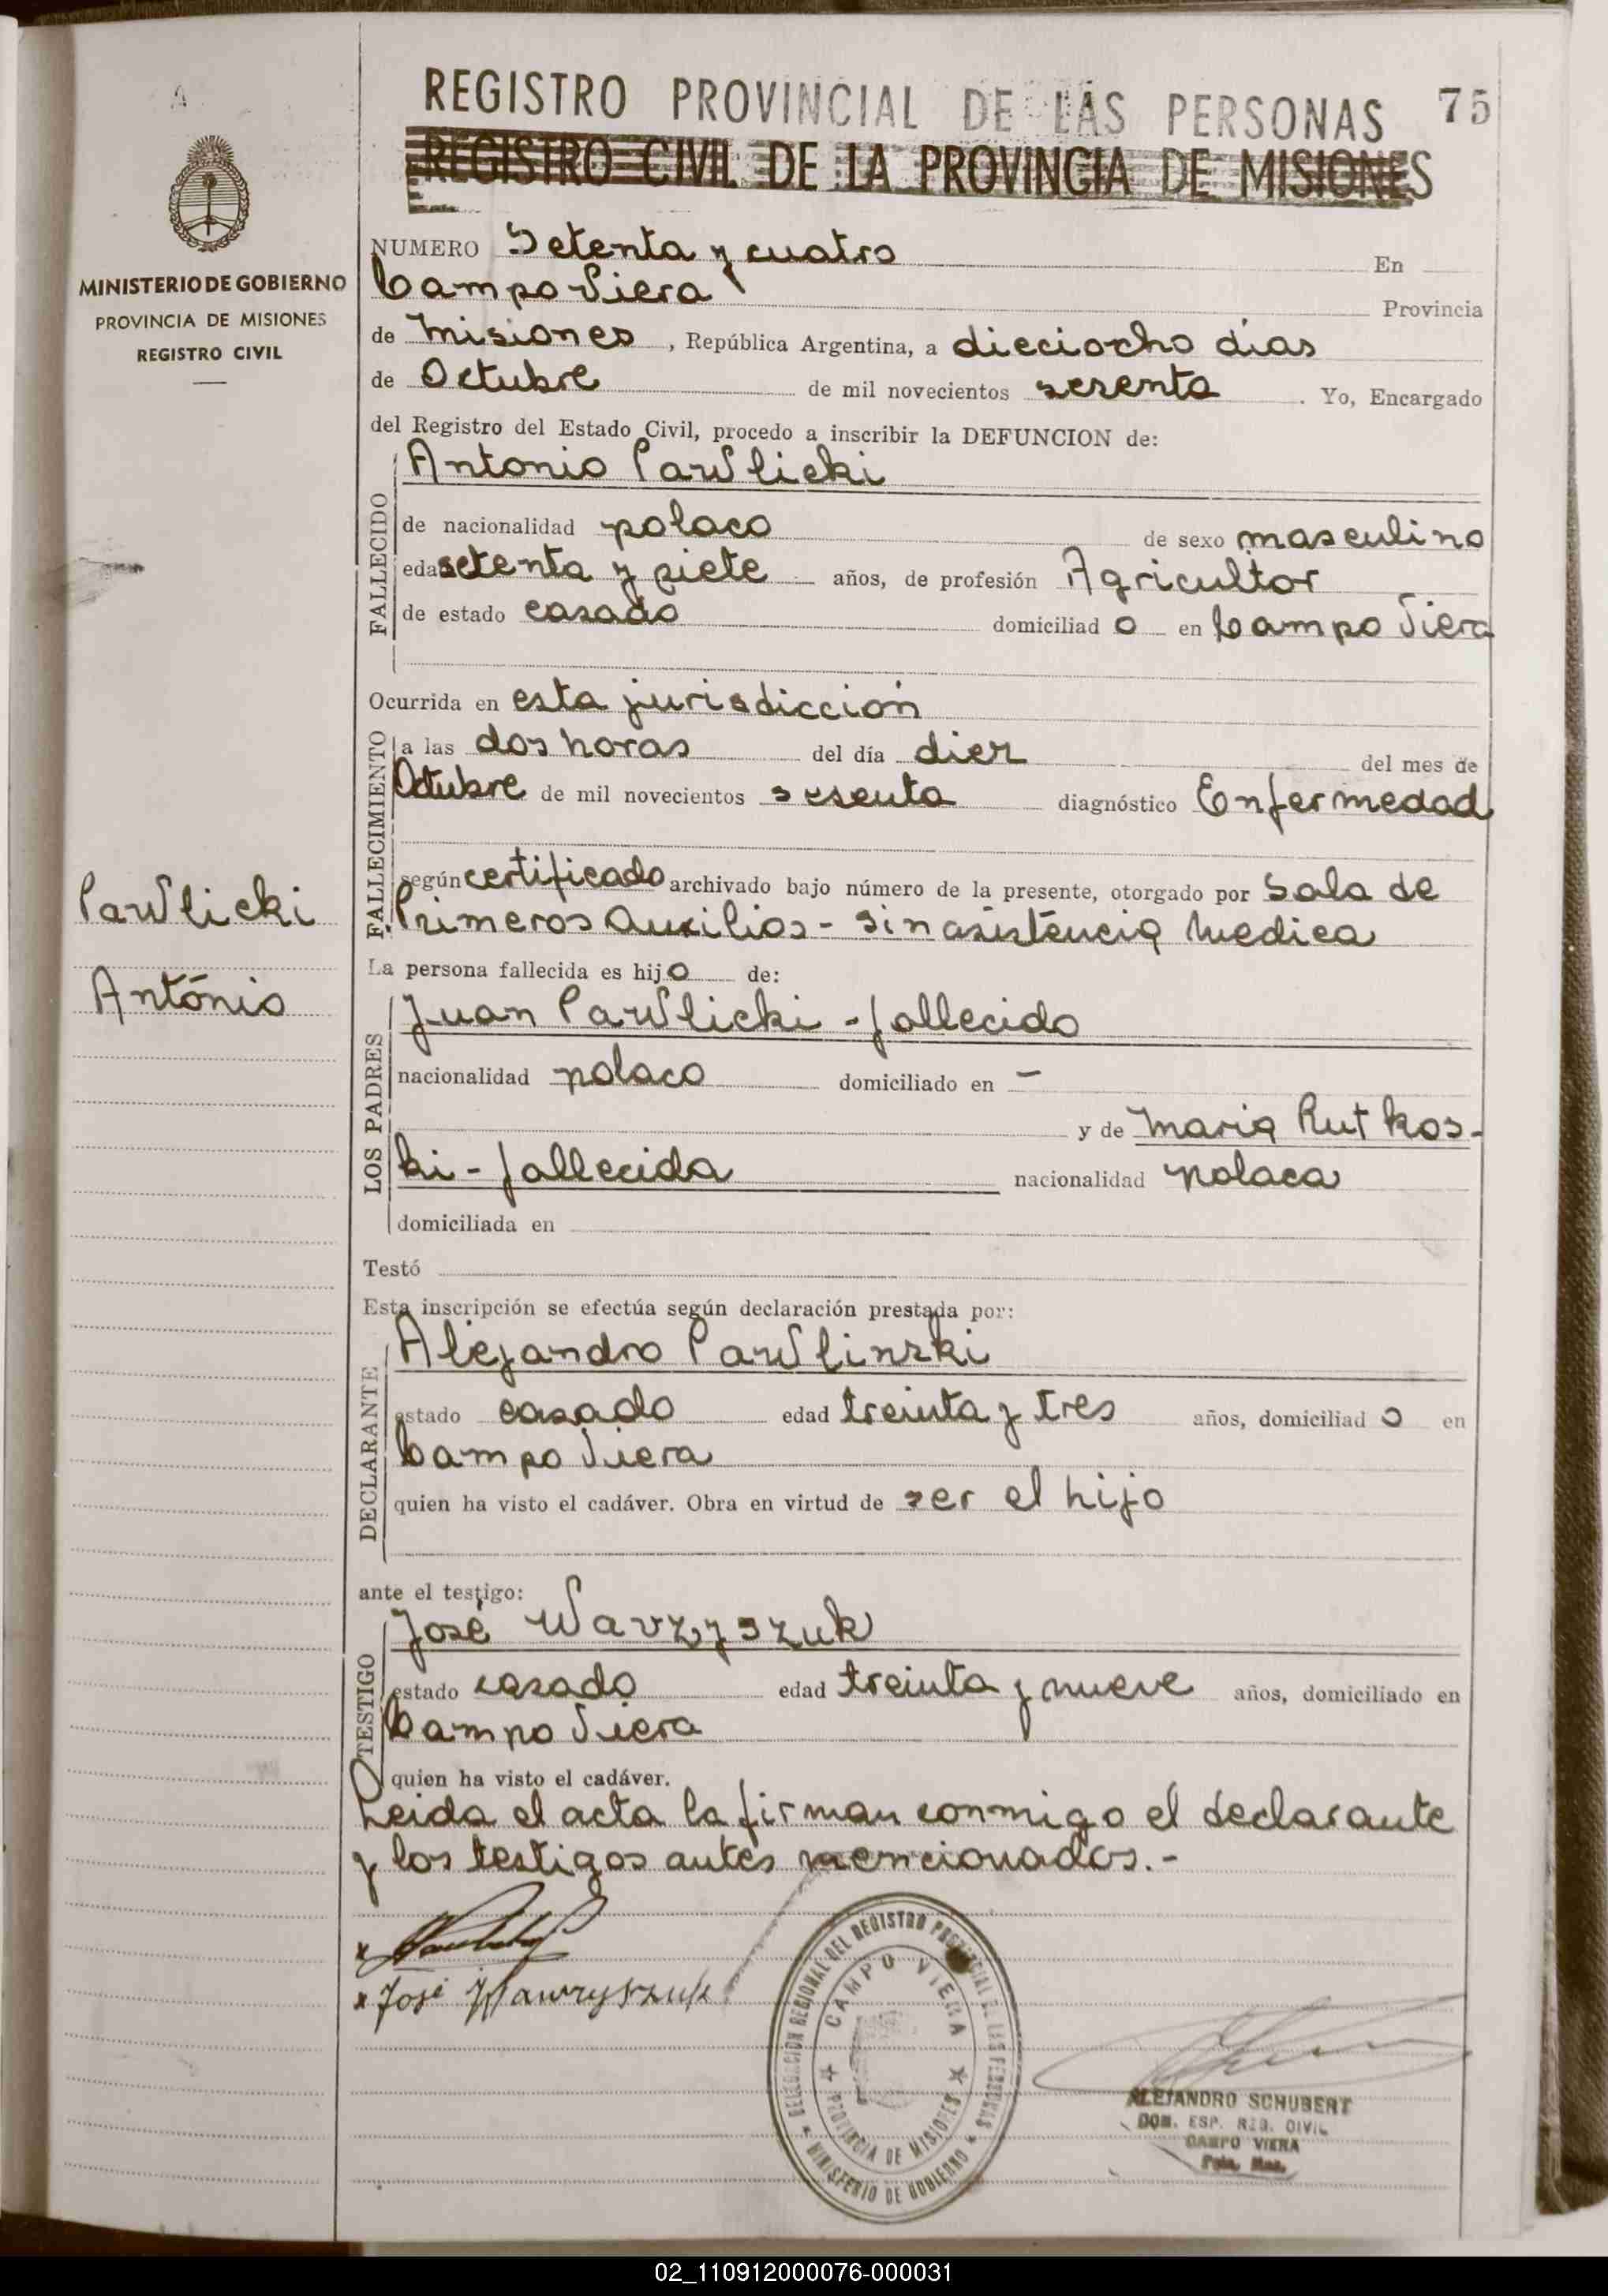 REGISTRO PROVINCIAL DE LAS PERSONAS 75
REGISTRO CIVIL DE LA PROVINCIA DE MISIONES
MINISTERIO DE GOBIERNO
PROVINCIA DE MISIONES
REGISTRO CIVIL
NUMERO Setenta y cuatro En
Campo Viera Provincia
de Misiones, República Argentina, a dieciocho días
de Octubre de mil novecientos sesenta. Yo, Encargado
del Registro del Estado Civil, procedo a inscribir la DEFUNCION de:
FALLECIDO
Antonio Pawlicki
de nacionalidad polaco de sexo masculino
edad setenta y siete años, de profesión Agricultor
de estado casado domiciliado en Campo Viera
Ocurrida en esta jurisdicción
FALLECIMIENTO
a las dos horas del día diez del mes de
Octubre de mil novecientos sesenta diagnóstico Enfermedad
según certificado archivado bajo número de la presente, otorgado por Sala de
Primeros Auxilios - sin asistencia medica
Pawlicki
Antonio
La persona fallecida es hijo de:
LOS PADRES
Juan Pawlicki - fallecido
nacionalidad polaco domiciliado en -
y de Maria Rutkos-
ki - fallecida nacionalidad polaca
domiciliada en
Testó
Esta inscripción se efectúa según declaración prestada por:
DECLARANTE
Alejandro Pawlinski
estado casado edad treinta y tres años, domiciliado en
Campo Viera
quien ha visto el cadáver. Obra en virtud de ser el hijo
ante el testigo:
TESTIGO
José Wavzyszuk
estado casado edad treinta y nueve años, domiciliado en
Campo Viera
quien ha visto el cadáver.
Leida el acta la firman conmigo el declarante
y los testigos antes mencionados.-
x
x José Wawryszuk
DELEGACION REGIONAL DEL REGISTRO PROVINCIAL DE LAS PERSONAS
CAMPO VIERA
PROVINCIA DE MISIONES
MINISTERIO DE GOBIERNO
ALEJANDRO SCHUBERT
ESP. REG. CIVIL
CAMPO VIERA
02_110912000076-000031